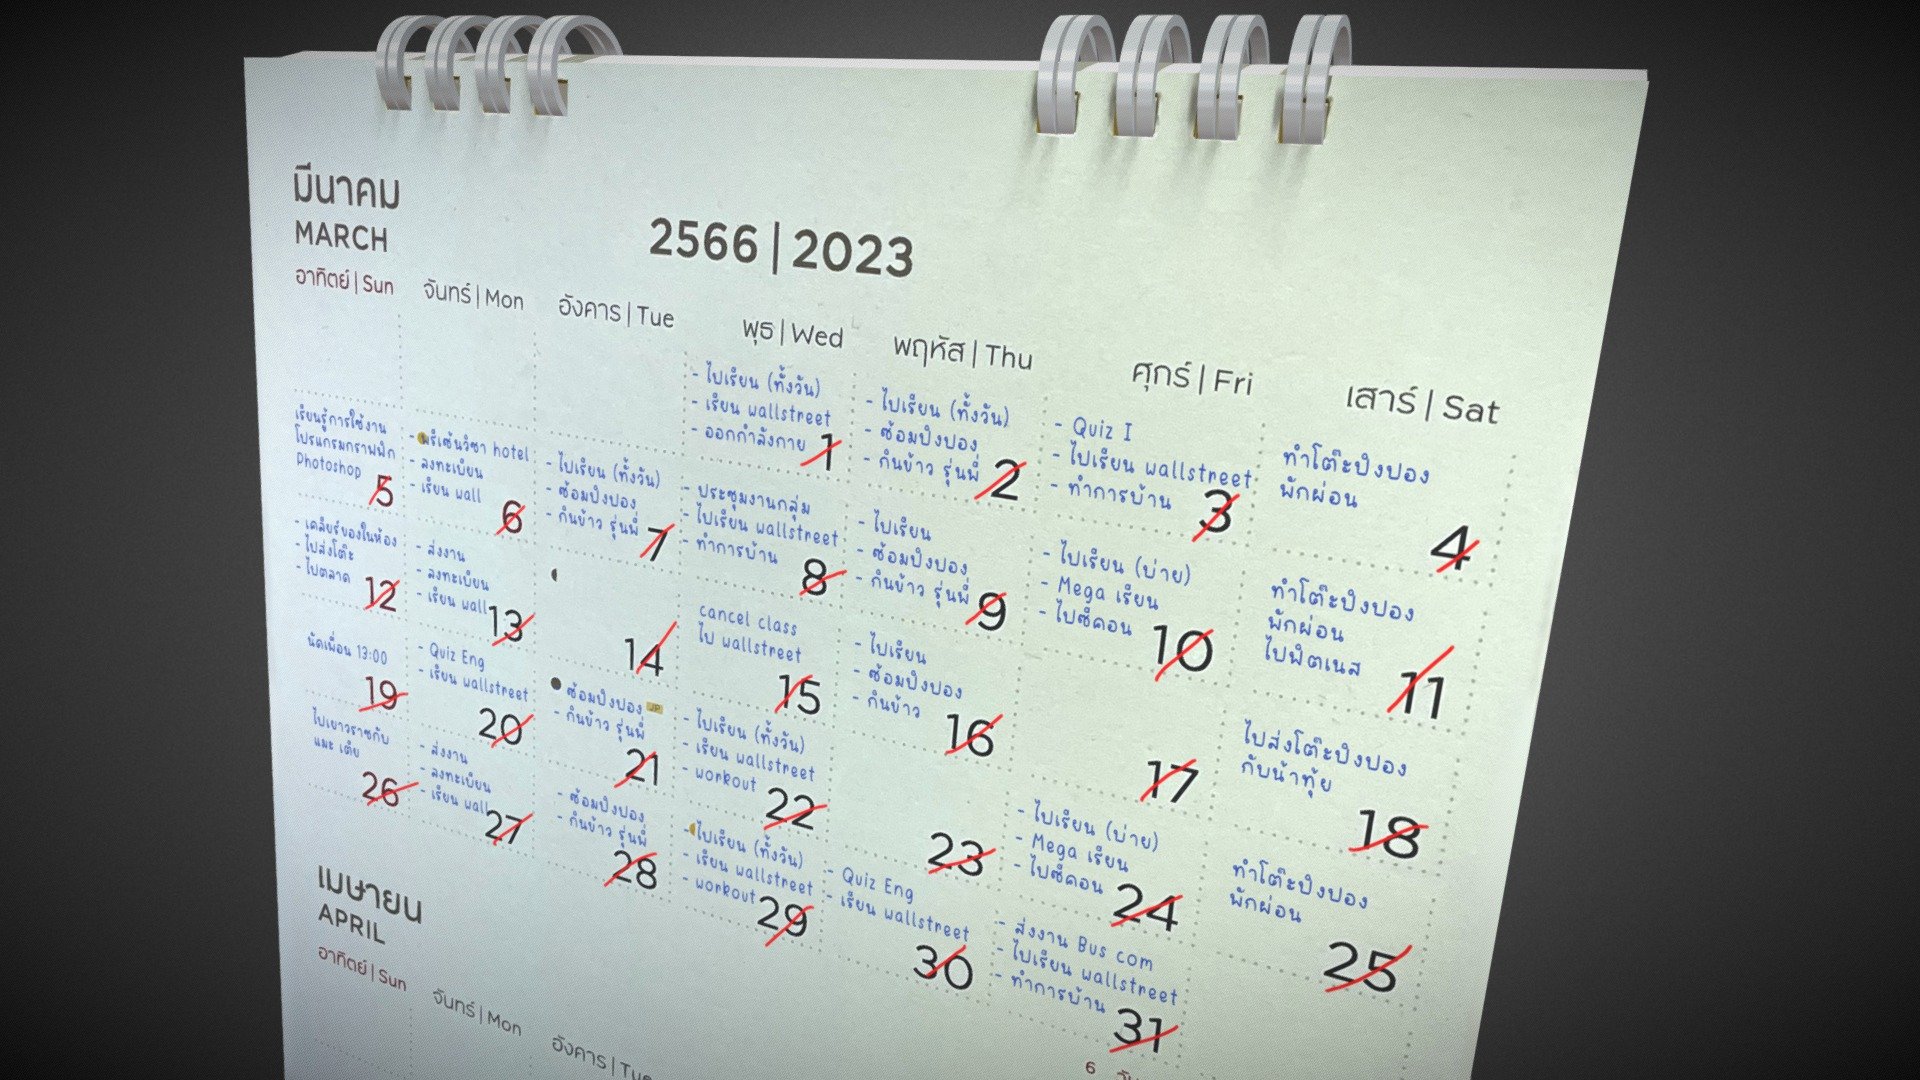 มีนาคม
MARCH
2566 | 2023
อาทิตย์ | Sun
จันทร์ | Mon
อังคาร | Tue
พุธ | Wed
พฤหัส | Thu
ศุกร์ | Fri
เสาร์ | Sat
- ไปเรียน (ทั้งวัน)
- เรียน wallstreet
- ออกกำลังกาย
1
- ไปเรียน (ทั้งวัน)
- ซ้อมปิงปอง
- กินข้าว รุ่นพี่
2
- Quiz I
- ไปเรียน wallstreet
- ทำการบ้าน
3
ทำโต๊ะปิงปอง
พักผ่อน
4
เรียนรู้การใช้งาน
โปรแกรมกราฟฟิก
Photoshop
5
- พรีเซ้นวิชา hotel
- ลงทะเบียน
- เรียน wall
6
- ไปเรียน (ทั้งวัน)
- ซ้อมปิงปอง
- กินข้าว รุ่นพี่
7
- ประชุมงานกลุ่ม
- ไปเรียน wallstreet
- ทำการบ้าน
8
- ไปเรียน
- ซ้อมปิงปอง
- กินข้าว รุ่นพี่
9
- ไปเรียน (บ่าย)
- Mega เรียน
- ไปซีคอน
10
ทำโต๊ะปิงปอง
พักผ่อน
ไปฟิตเนส
11
- เคลียร์ของในห้อง
- ไปส่งโต๊ะ
- ไปตลาด
12
- ส่งงาน
- ลงทะเบียน
- เรียน wall
13
14
cancel class
ไป wallstreet
15
- ไปเรียน
- ซ้อมปิงปอง
- กินข้าว
16
17
ไปส่งโต๊ะปิงปอง
กับน้าทุ้ย
18
นัดเพื่อน 13:00
19
- Quiz Eng
- เรียน wallstreet
20
ซ้อมปิงปอง
- กินข้าว รุ่นพี่
21
- ไปเรียน (ทั้งวัน)
- เรียน wallstreet
- workout
22
23
- ไปเรียน (บ่าย)
- Mega เรียน
- ไปซีคอน
24
ทำโต๊ะปิงปอง
พักผ่อน
25
ไปเยาวราชกับ
แมะ เตี่ย
26
- ส่งงาน
- ลงทะเบียน
- เรียน wall
27
- ซ้อมปิงปอง
- กินข้าว รุ่นพี่
28
- ไปเรียน (ทั้งวัน)
- เรียน wallstreet
- workout
29
- Quiz Eng
- เรียน wallstreet
30
- ส่งงาน Bus com
- ไปเรียน wallstreet
- ทำการบ้าน
31
เมษายน
APRIL
อาทิตย์ | Sun
จันทร์ | Mon
อังคาร | Tue
6